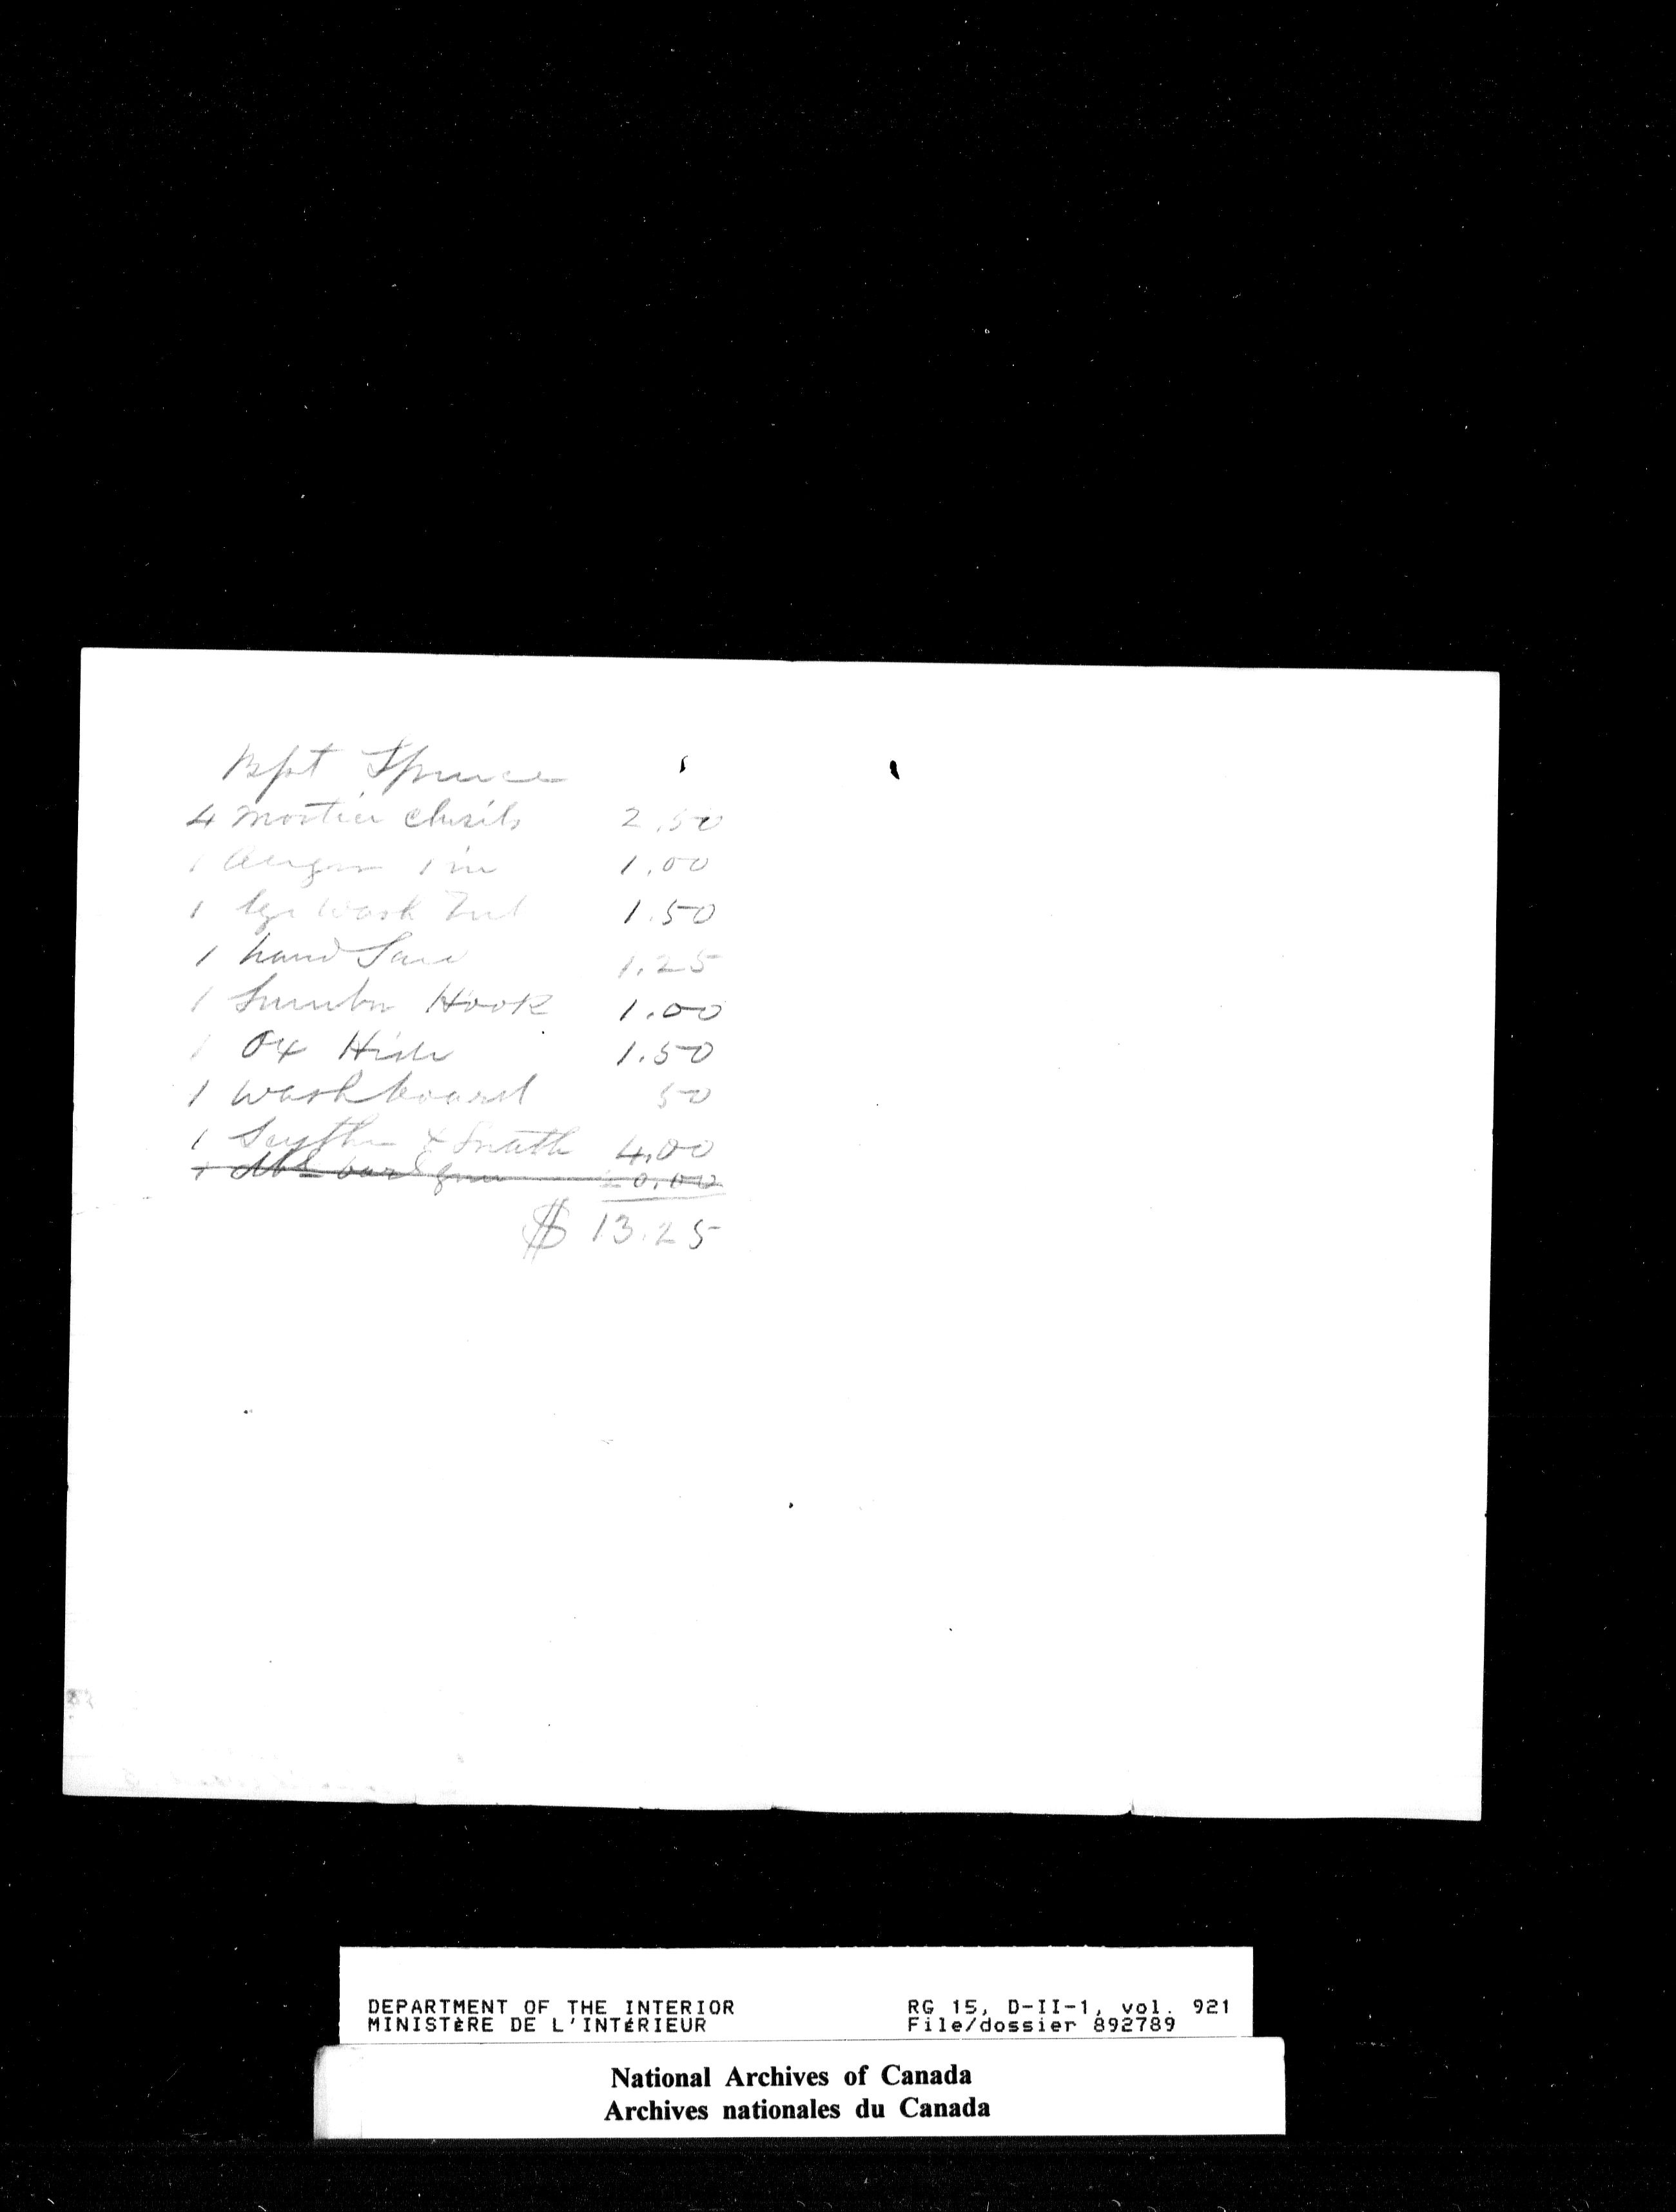 Bpt Spruce
4 Mortice chisils 2.50
1 Auger 1 in 1.00
1 lge Wash Tub 1.50
1 hand Saw 1.25
1 Lumber Hook 1.00
1 Ox Hide 1.50
1 Washboard 50
1 Scythe & Snath 4.00
1 dbl bar l gun 20.00
$ 13.25
DEPARTMENT OF THE INTERIOR RG 15, D-II-1, vol. 921
MINISTÈRE DE L'INTÉRIEUR File/dossier 892789
National Archives of Canada
Archives nationales du Canada